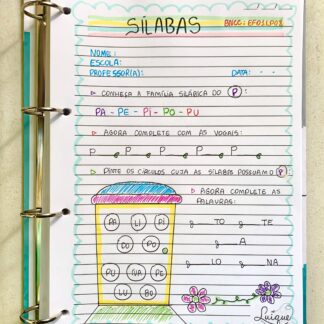 SÍLABAS
BNCC: EF01LP08
NOME:
ESCOLA:
PROFESSOR(A):
DATA: - -
CONHEÇA A FAMÍLIA SILÁBICA DO P:
PA - PE - PI - PO - PU
AGORA COMPLETE COM AS VOGAIS:
P__ P__ P__ P__ P__
PINTE OS CÍRCULOS CUJA AS SÍLABAS POSSUAM O P:
AGORA COMPLETE AS PALAVRAS:
PA LI PI
DO PO
PU PE
LU BO
__TO __TE
__A
__LO __NA
Luique